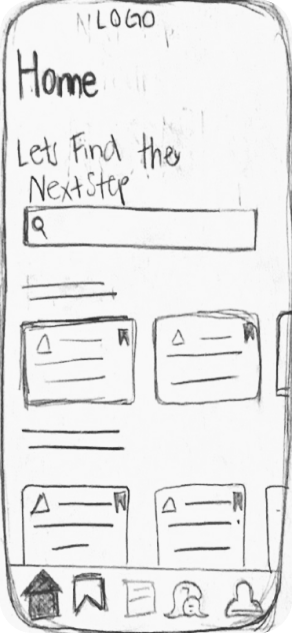 LOGO
Home
Lets Find the
Next Step